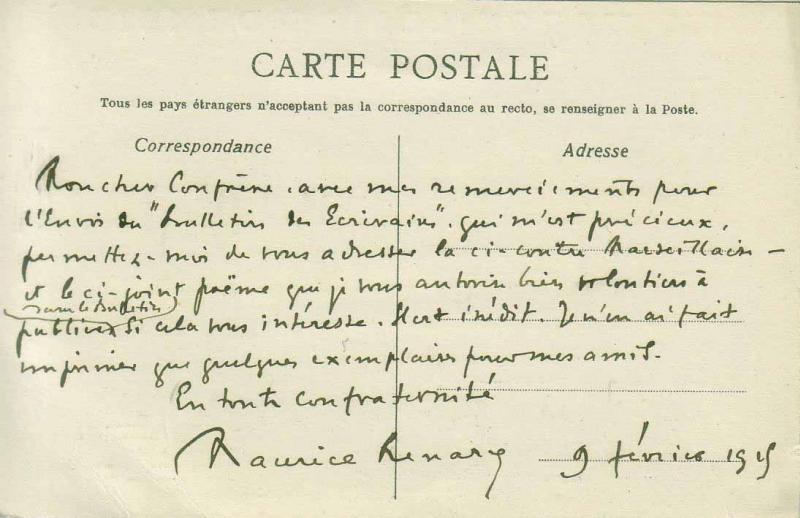 CARTE POSTALE
Tous les pays étrangers n'acceptant pas la correspondance au recto, se renseigner à la Poste.
Correspondance
Adresse
Mon cher Confrère, avec mes remerciements pour
l'Envoi du "Bulletin des Ecrivains", qui m'est précieux,
permettez-moi de vous adresser la ci-contre Marseillaise —
et le ci-joint poëme que je vous autorise bien volontiers à
dans le Bulletin
publier si cela vous intéresse. Il est inédit. Je n'en ai fait
imprimer que quelques exemplaires pour mes amis.
En toute confraternité
Maurice Renard
9 février 1915